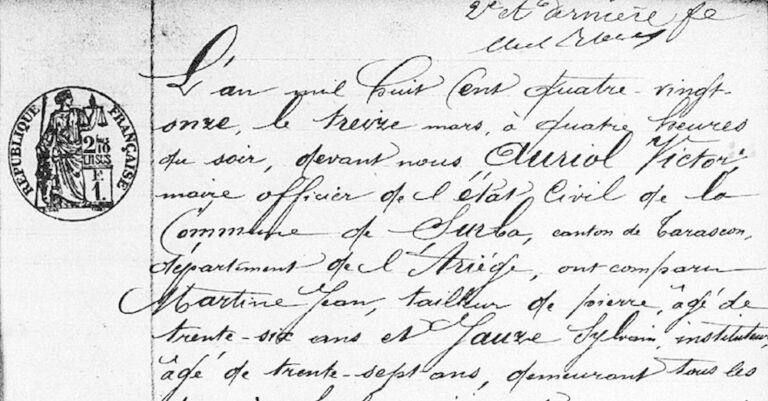 2e et dernière fe
L'an mil huit Cent quatre-vingt-
onze, le treize mars, à quatre heures
du soir, devant nous Auriol Victor,
maire officier de l'état Civil de la
Commune de Surba, canton de Tarascon,
département de l'Ariége, ont comparu
Martine Jean, tailleur de pierre, âgé de
trente-six ans et Jauze Sylvain, instituteur,
âgé de trente-sept ans, demeurant tous les
RÉPUBLIQUE FRANÇAISE